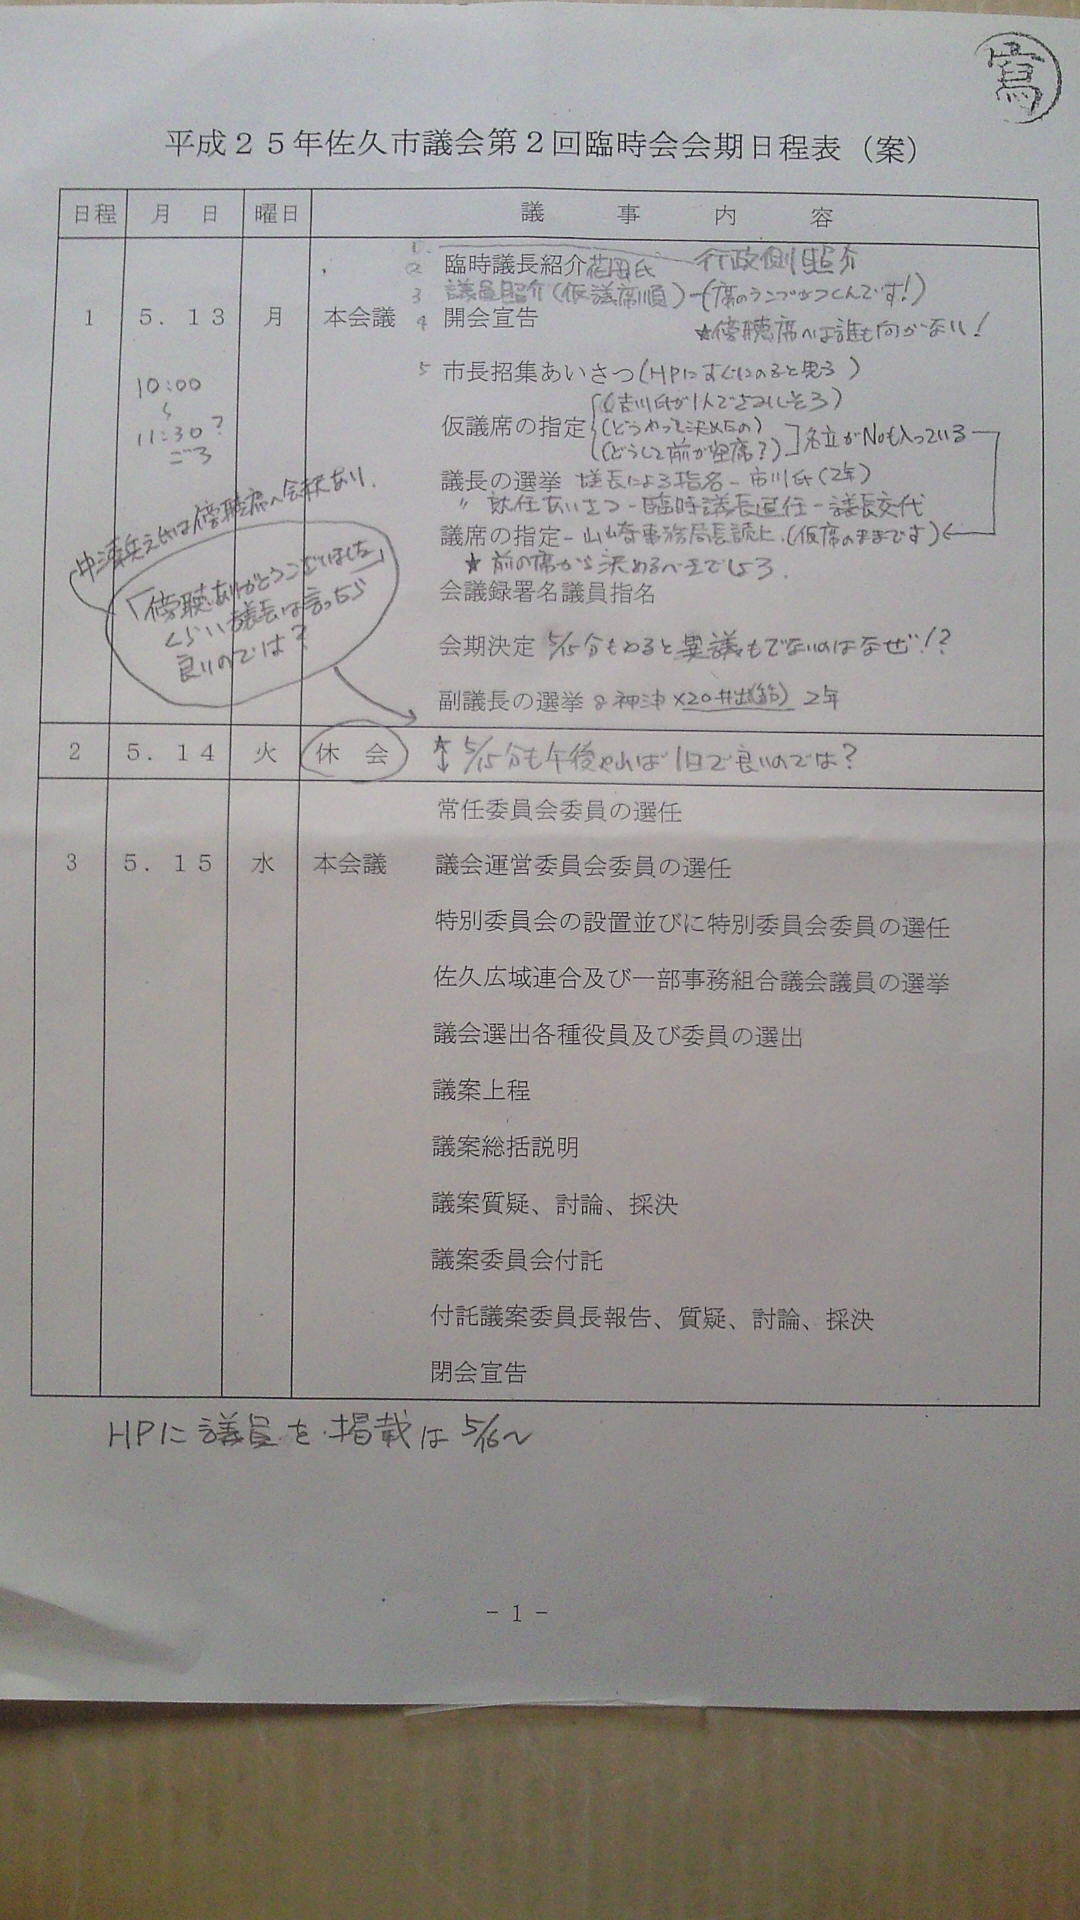 寫
平成２５年佐久市議会第２回臨時会会期日程表（案）
日程 月 日 曜日 議 事 内 容
1.
2 臨時議長紹介 花岡氏 行政側照介
3 議員照介(仮議席順) (席のランプがつくんです!)
1 5.13 月 本会議 4 開会宣告
★傍聴席へは誰も向かない!
5 市長招集あいさつ(HPにすぐにのると思う)
10:00
〜
11:30?
ごろ
仮議席の指定
(どうやって決めたの)
(どうして前が空席?)
名立がNoも入っている
議長の選挙 議長による指名-市川氏(2年)
〃 就任あいさつ-臨時議長退任-議長交代
議席の指定-山崎事務局長読上.(仮席のままです)
★前の席から決めるべきでしょう.
会議録署名議員指名
は傍聴席へ会釈あり.
「傍聴ありがとうございました」
くらい議長は言ったら
良いのでは?
会期決定 5/15分もやると異議もでないのはなぜ!?
副議長の選挙 8神津×20井出(節) 2年
2 5.14 火 休会 5/15分も午後やれば1日で良いのでは?
常任委員会委員の選任
3 5.15 水 本会議 議会運営委員会委員の選任
特別委員会の設置並びに特別委員会委員の選任
佐久広域連合及び一部事務組合議会議員の選挙
議会選出各種役員及び委員の選出
議案上程
議案総括説明
議案質疑、討論、採決
議案委員会付託
付託議案委員長報告、質疑、討論、採決
閉会宣告
HPに議員を掲載は5/16〜
- 1 -